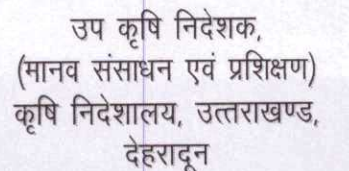 उप कृषि निदेशक,
(मानव संसाधन एवं प्रशिक्षण)
कृषि निदेशालय, उत्तराखण्ड,
देहरादून